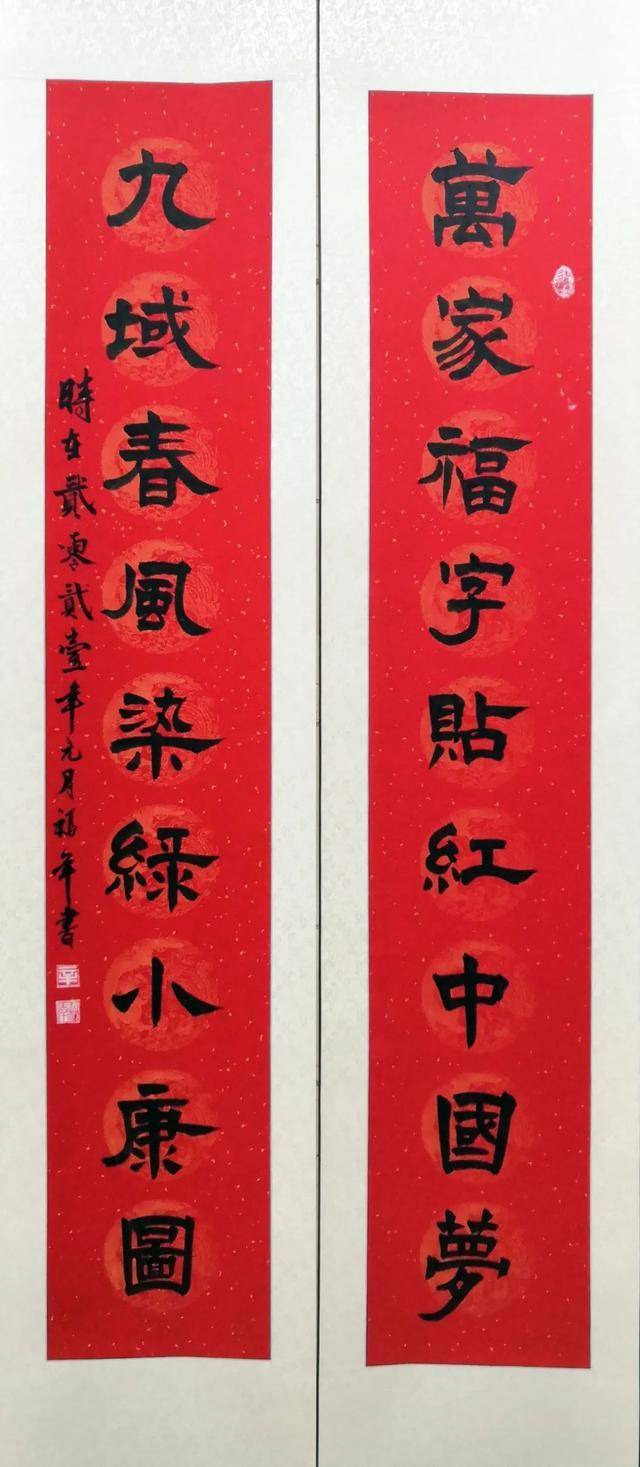 萬家福字貼紅中國夢
九域春風染綠小康圖
時在貳零貳壹年元月福年書